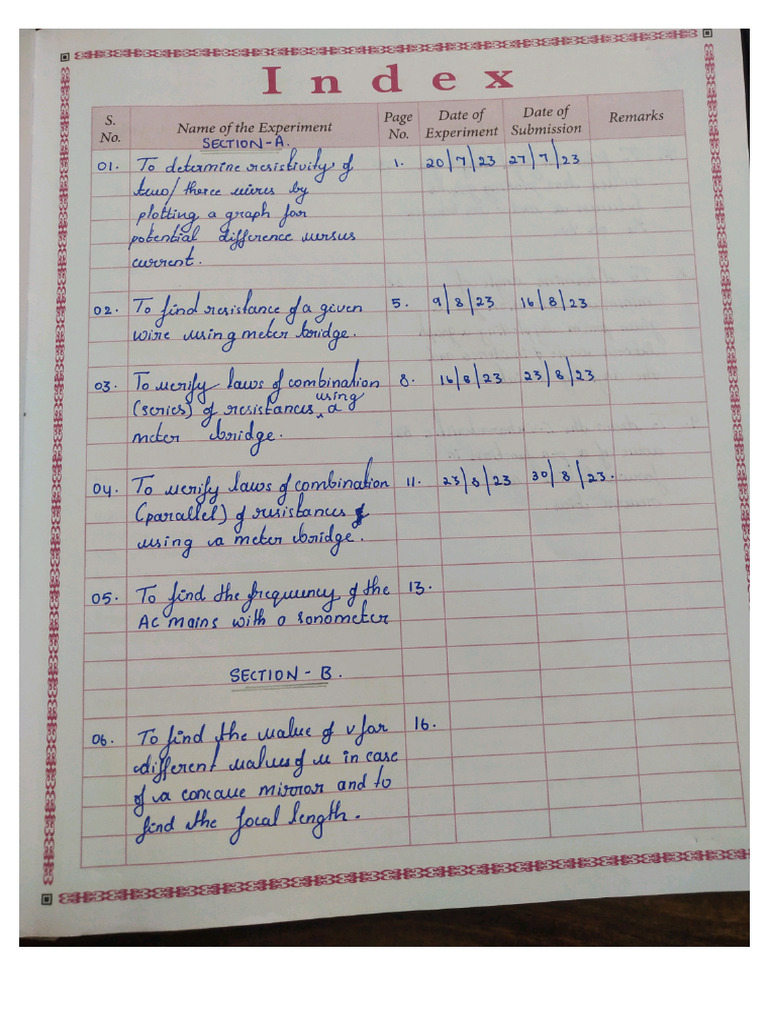 Index
S. No. Name of the Experiment Page No. Date of Experiment Date of Submission Remarks
SECTION-A.
01. To determine resistivity of 1. 20/7/23 27/7/23
two/three wires by
plotting a graph for
potential difference versus
current.
02. To find resistance of a given 5. 9/8/23 16/8/23
wire using meter bridge.
03. To verify laws of combination 8. 16/8/23 23/8/23
(series) of resistances using a
meter bridge.
04. To verify laws of combination 11. 23/8/23 30/8/23.
(parallel) of resistances
using a meter bridge.
05. To find the frequency of the 13.
AC mains with a sonometer
SECTION - B.
06. To find the value of v for 16.
different values of u in case
of a concave mirror and to
find the focal length.